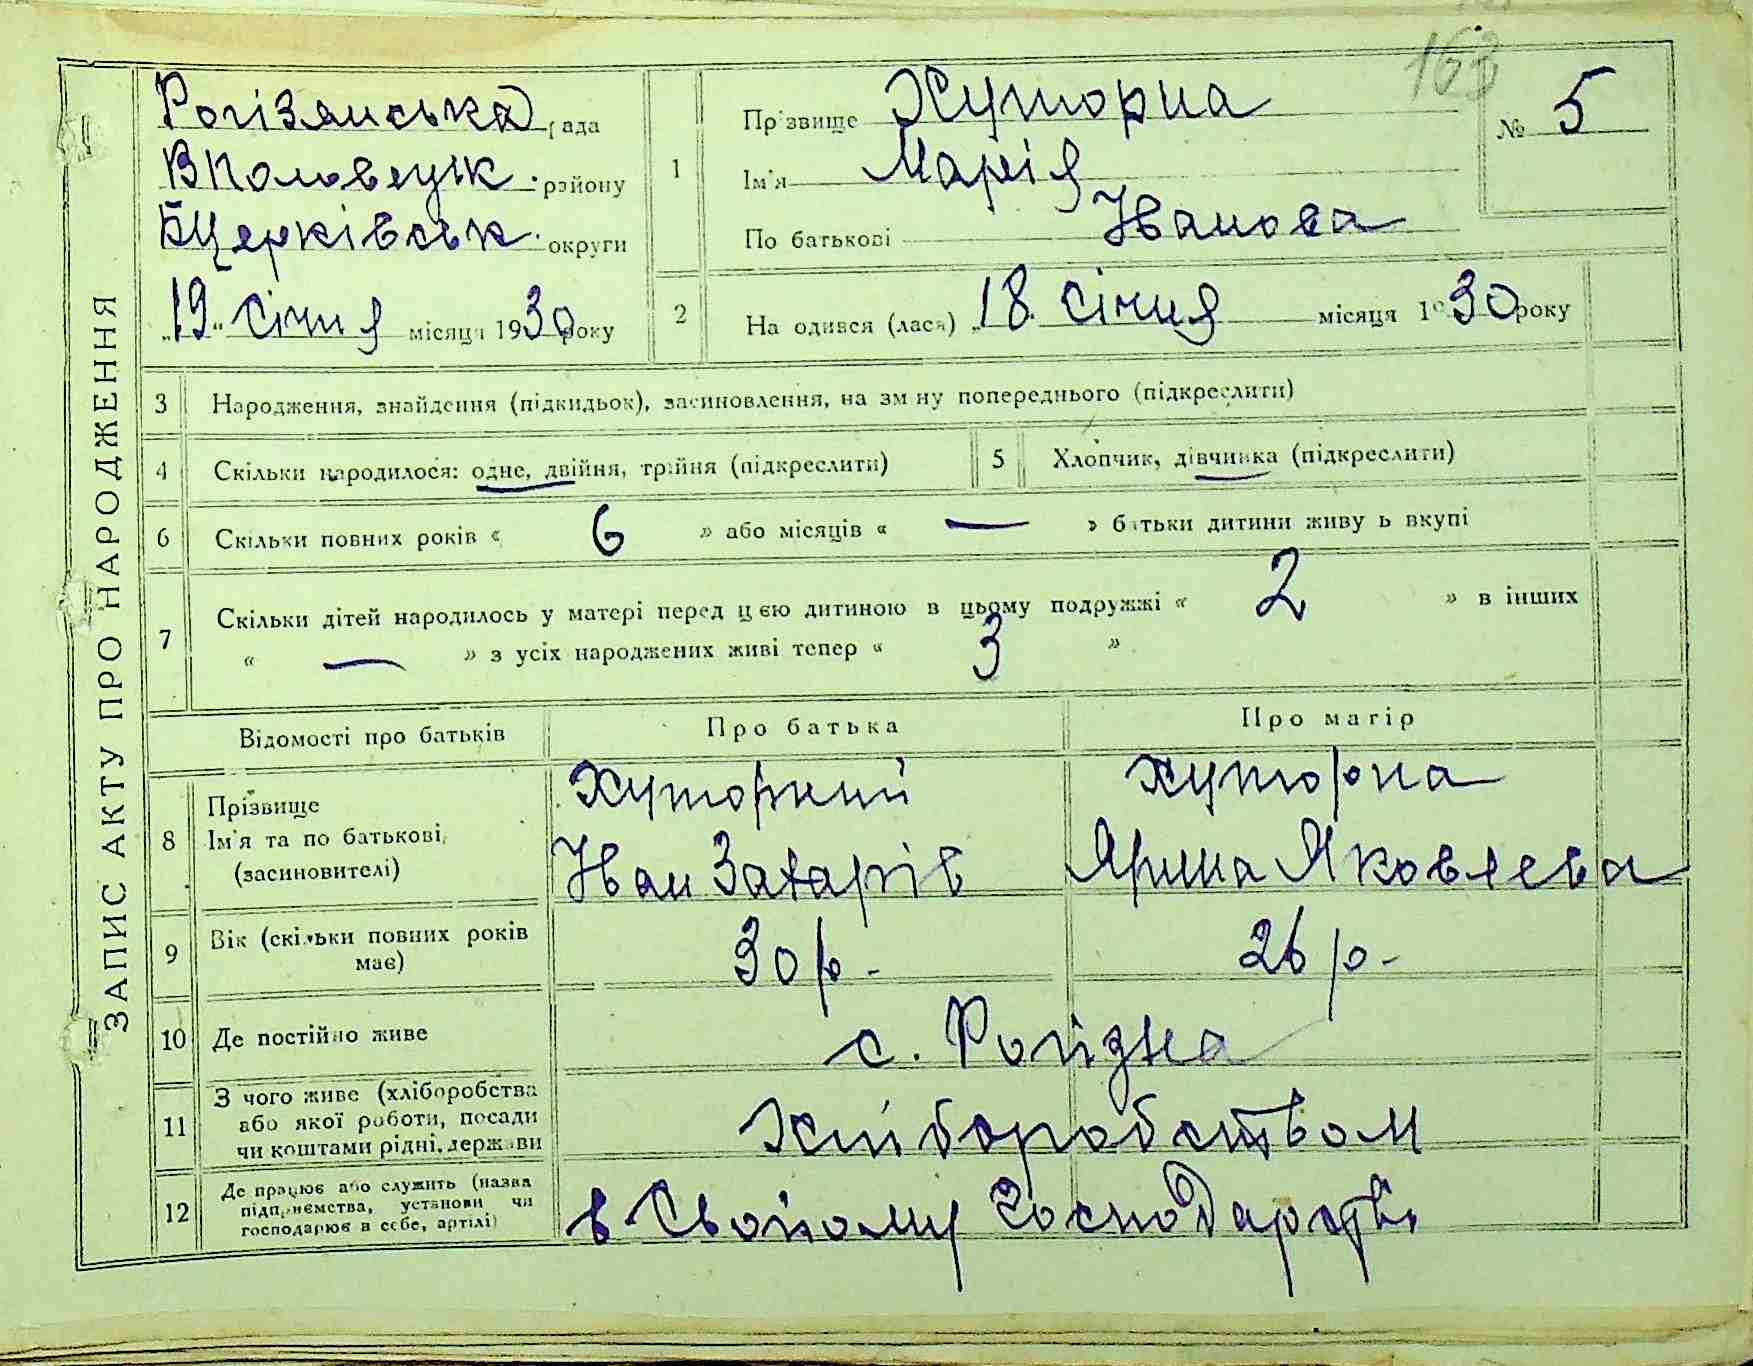 163
ЗАПИС АКТУ ПРО НАРОДЖЕННЯ
Рогізянська рада
ВПоловецьк. району
БЦерківськ. округи
„19“ січня місяця 1930 року
1
Прізвище Хуторна
Ім'я Марія
По батькові Іванова
№ 5
2
На одився (лася) „18. січня місяця 1930 року
3 Народження, знайдення (підкидьок), засиновлення, на зм ну попереднього (підкреслити)
4 Скільки народилося: одне, двійня, трійня (підкреслити)
5 Хлопчик, дівчинка (підкреслити)
6 Скільки повних років « 6 » або місяців « — » батьки дитини живу ь вкупі
7 Скільки дітей народилось у матері перед цєю дитиною в цьому подружжі « 2 » в інших
« — » з усіх народжених живі тепер « 3 »
Відомості про батьків Про батька Про матір
8 Прізвище
Ім'я та по батькові
(засиновителі)
Хуторний
Іван Захарів
Хуторна
Ярина Яковлева
9 Вік (скільки повних років
має)
30 р- 26 р-
10 Де постійно живе с. Рогізна
11 З чого живе (хліборобства
або якої роботи, посади
чи коштами рідні, держави
Хліборобством
12 Де працює або служить (назва
підприємства, установи чи
господарює в себе, артілі)
в своїому господарстві